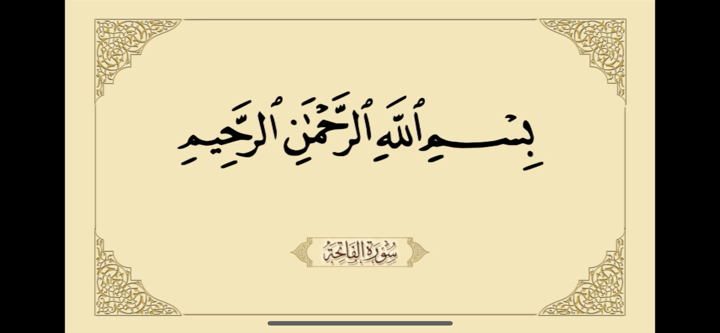 بِسْمِ ٱللَّهِ ٱلرَّحْمَٰنِ ٱلرَّحِيمِ
سُورَةُ الفَاتِحَة